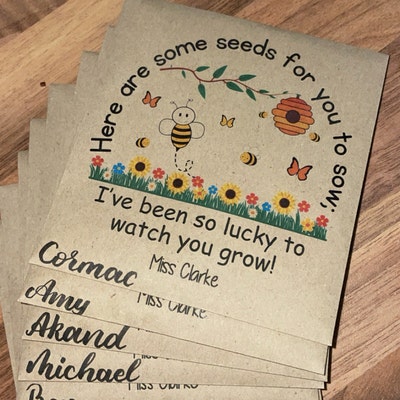 Here are some seeds for you to sow;
I've been so lucky to
watch you grow!
Miss Clarke
Cormac
Miss Clarke
Amy
Akand
Miss Clarke
Michael
Miss Clarke